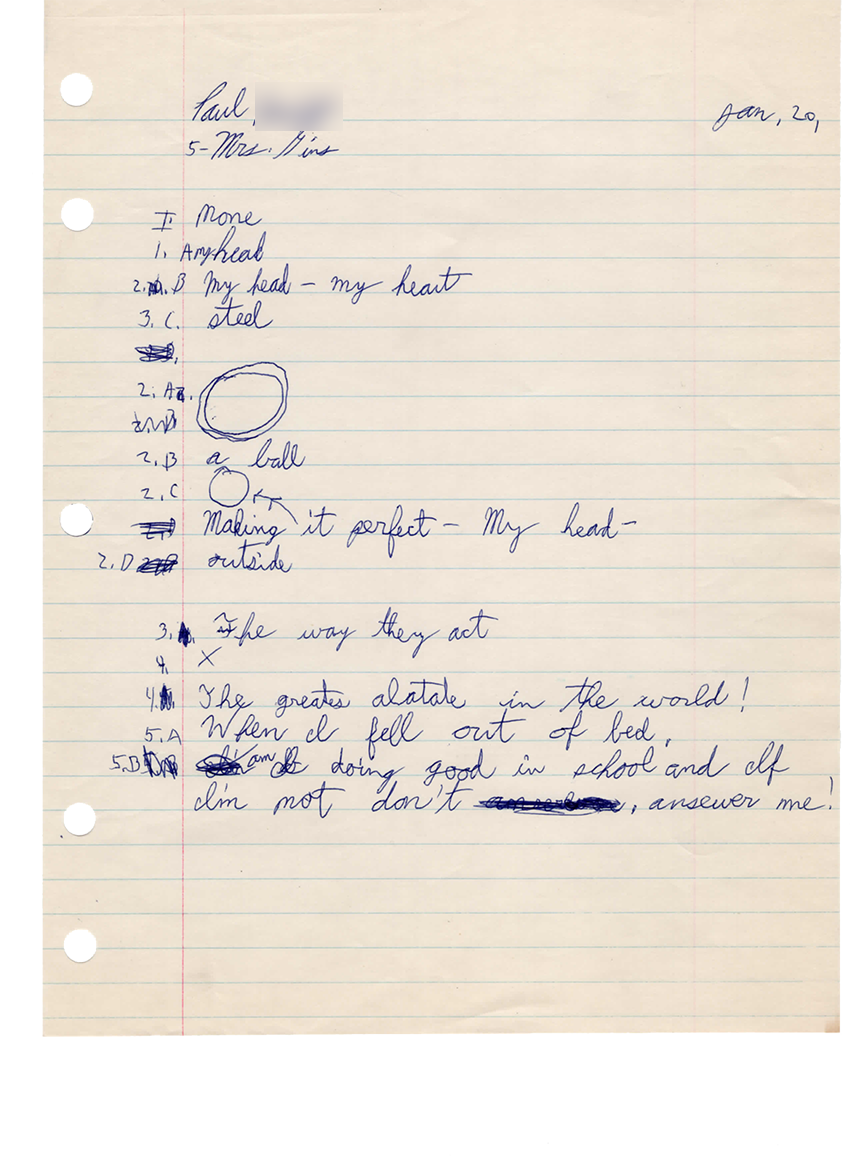 Paul
Jan, 20,
5- Mrs. Gins
I None
1. A my head
2. B My head - my heart
3. C. steel
2. A.
2. B a ball
2. C
Making it perfect - My head -
2. D outside
3. The way they act
4. X
4. The greates alatate in the world!
5. A When I fell out of bed,
5. B am I doing good in school and If
I'm not don't , ansewer me!